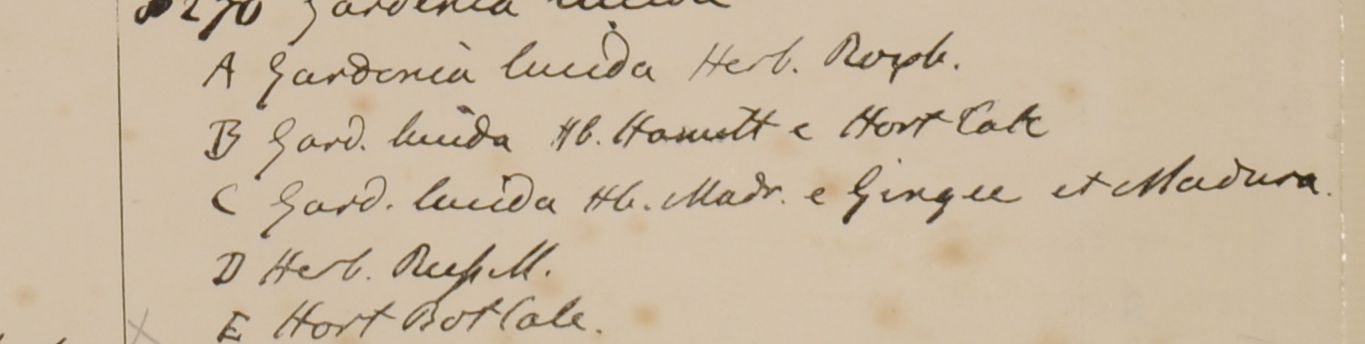 8270 Gardenia lucida
A Gardenia lucida Herb. Roxb.
B Gard. lucida Hb. Hamilt e Hort Calc
C Gard. lucida Hb. Madr. e Gingee et Madura.
D Herb. Russell.
E Hort Bot Calc.